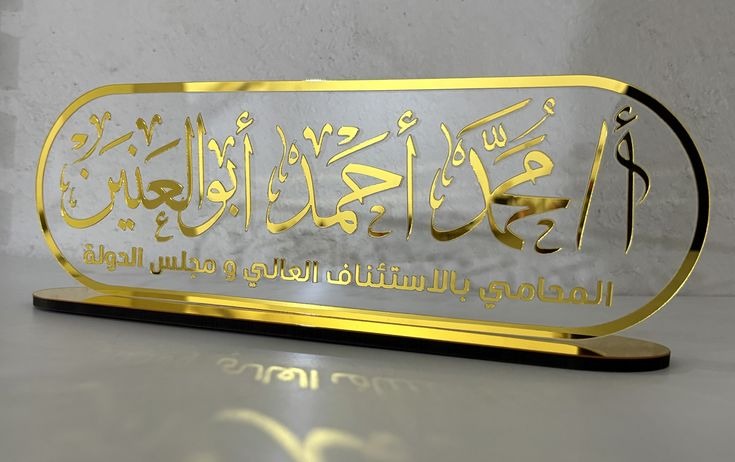 أ/ محمد أحمد أبو العنين
المحامي بالاستئناف العالي و مجلس الدولة